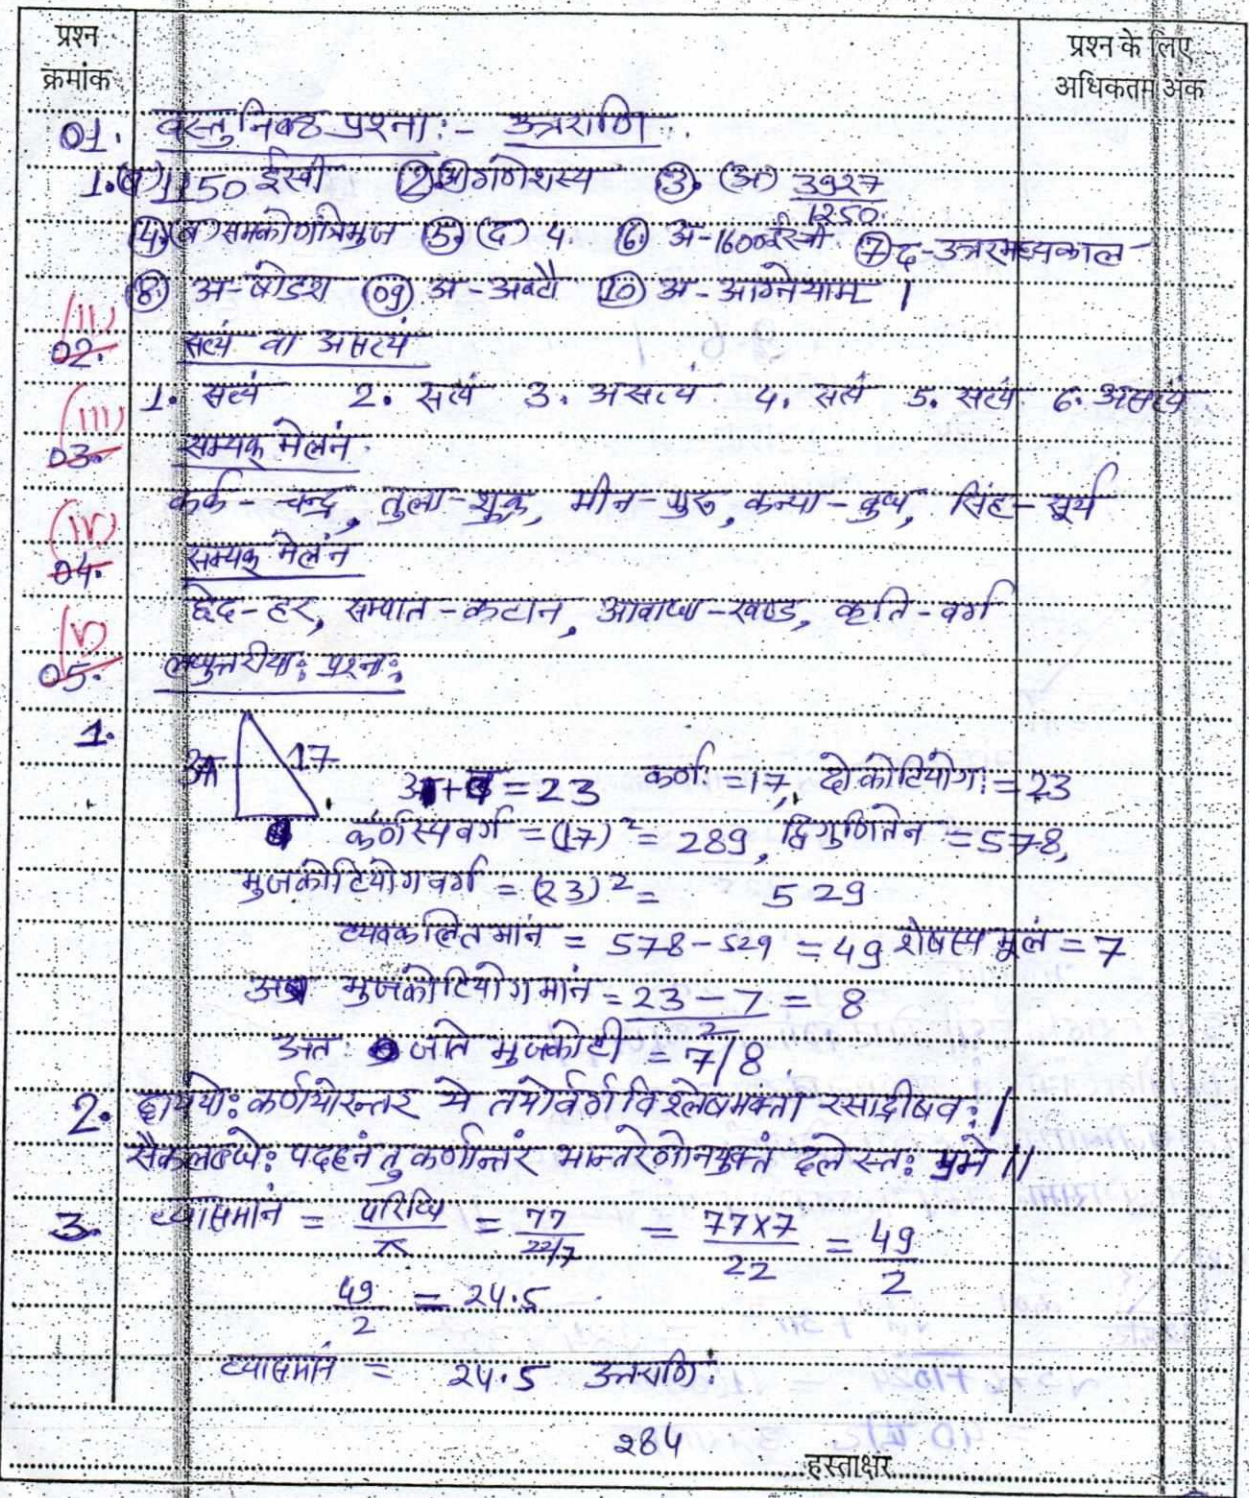 प्रश्न क्रमांक
प्रश्न के लिए अधिकतम अंक
01. वस्तुनिष्ठ प्रश्ना:- उत्तराणि
1.(ब) 1150 ईस्वी (2) अ गणेशस्य (3). (अ) 3927/1250
(4)(ब) समकोणत्रिभुज (5)(द) 4. (6) अ-1600 ईस्वी. (7) द-उत्तरमध्यकाल
(8) अ-षोडश (09) अ-अवटौ (10) अ-आग्नेयाम् ।
(II) 02. सत्यं वा असत्यं
1. सत्यं 2. सत्यं 3. असत्यं 4. सत्यं 5. सत्यं 6. असत्यं
(III) 03. सम्यक् मेलनं
कर्क - चन्द्र, तुला-शुक्र, मीन-गुरु, कन्या-बुध, सिंह-सूर्य
(IV) 04. सम्यक् मेलनं
छेद-हर, सम्पात-कटान, आवाधा-खण्ड, कृति-वर्ग
(V) 05. लघुत्तरीया: प्रश्ना:
1.
अ 17 अ+ब = 23 कर्ण: = 17, दोकोटियोग: = 23
ब कर्णस्य वर्ग = (17)² = 289, द्विगुणितेन = 578,
भुजकोटियोग वर्ग = (23)² = 529
व्यवकलित मानं = 578 - 529 = 49 शेषस्य मूलं = 7
भुजकोटियोग मानं = 23 - 7/2 = 8
अत: जाते भुजकोटी = 7/8
2. छाययो: कर्णयोरन्तरे ये तयोर्वर्गविश्लेषभक्ता रसाद्रीषव: ।
सैकलब्धे: पदहनं तु कर्णान्तरं भान्तरेणोनयुक्तं दले स्त: प्रभे ॥
3. व्यासमानं = परिधि/π = 77/22/7 = 77×7/22 = 49/2
49/2 = 24.5
व्यासमानं = 24.5 उत्तराणि:
284
हस्ताक्षर